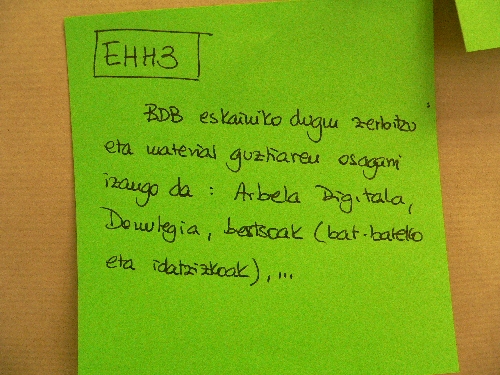 EHH3
BDB eskainiko dugun zerbitzu
eta material guztiaren osagarri
izango da : Arbela Digitala,
Doinutegia, bertsoak (bat-bateko
eta idatzizkoak), ...